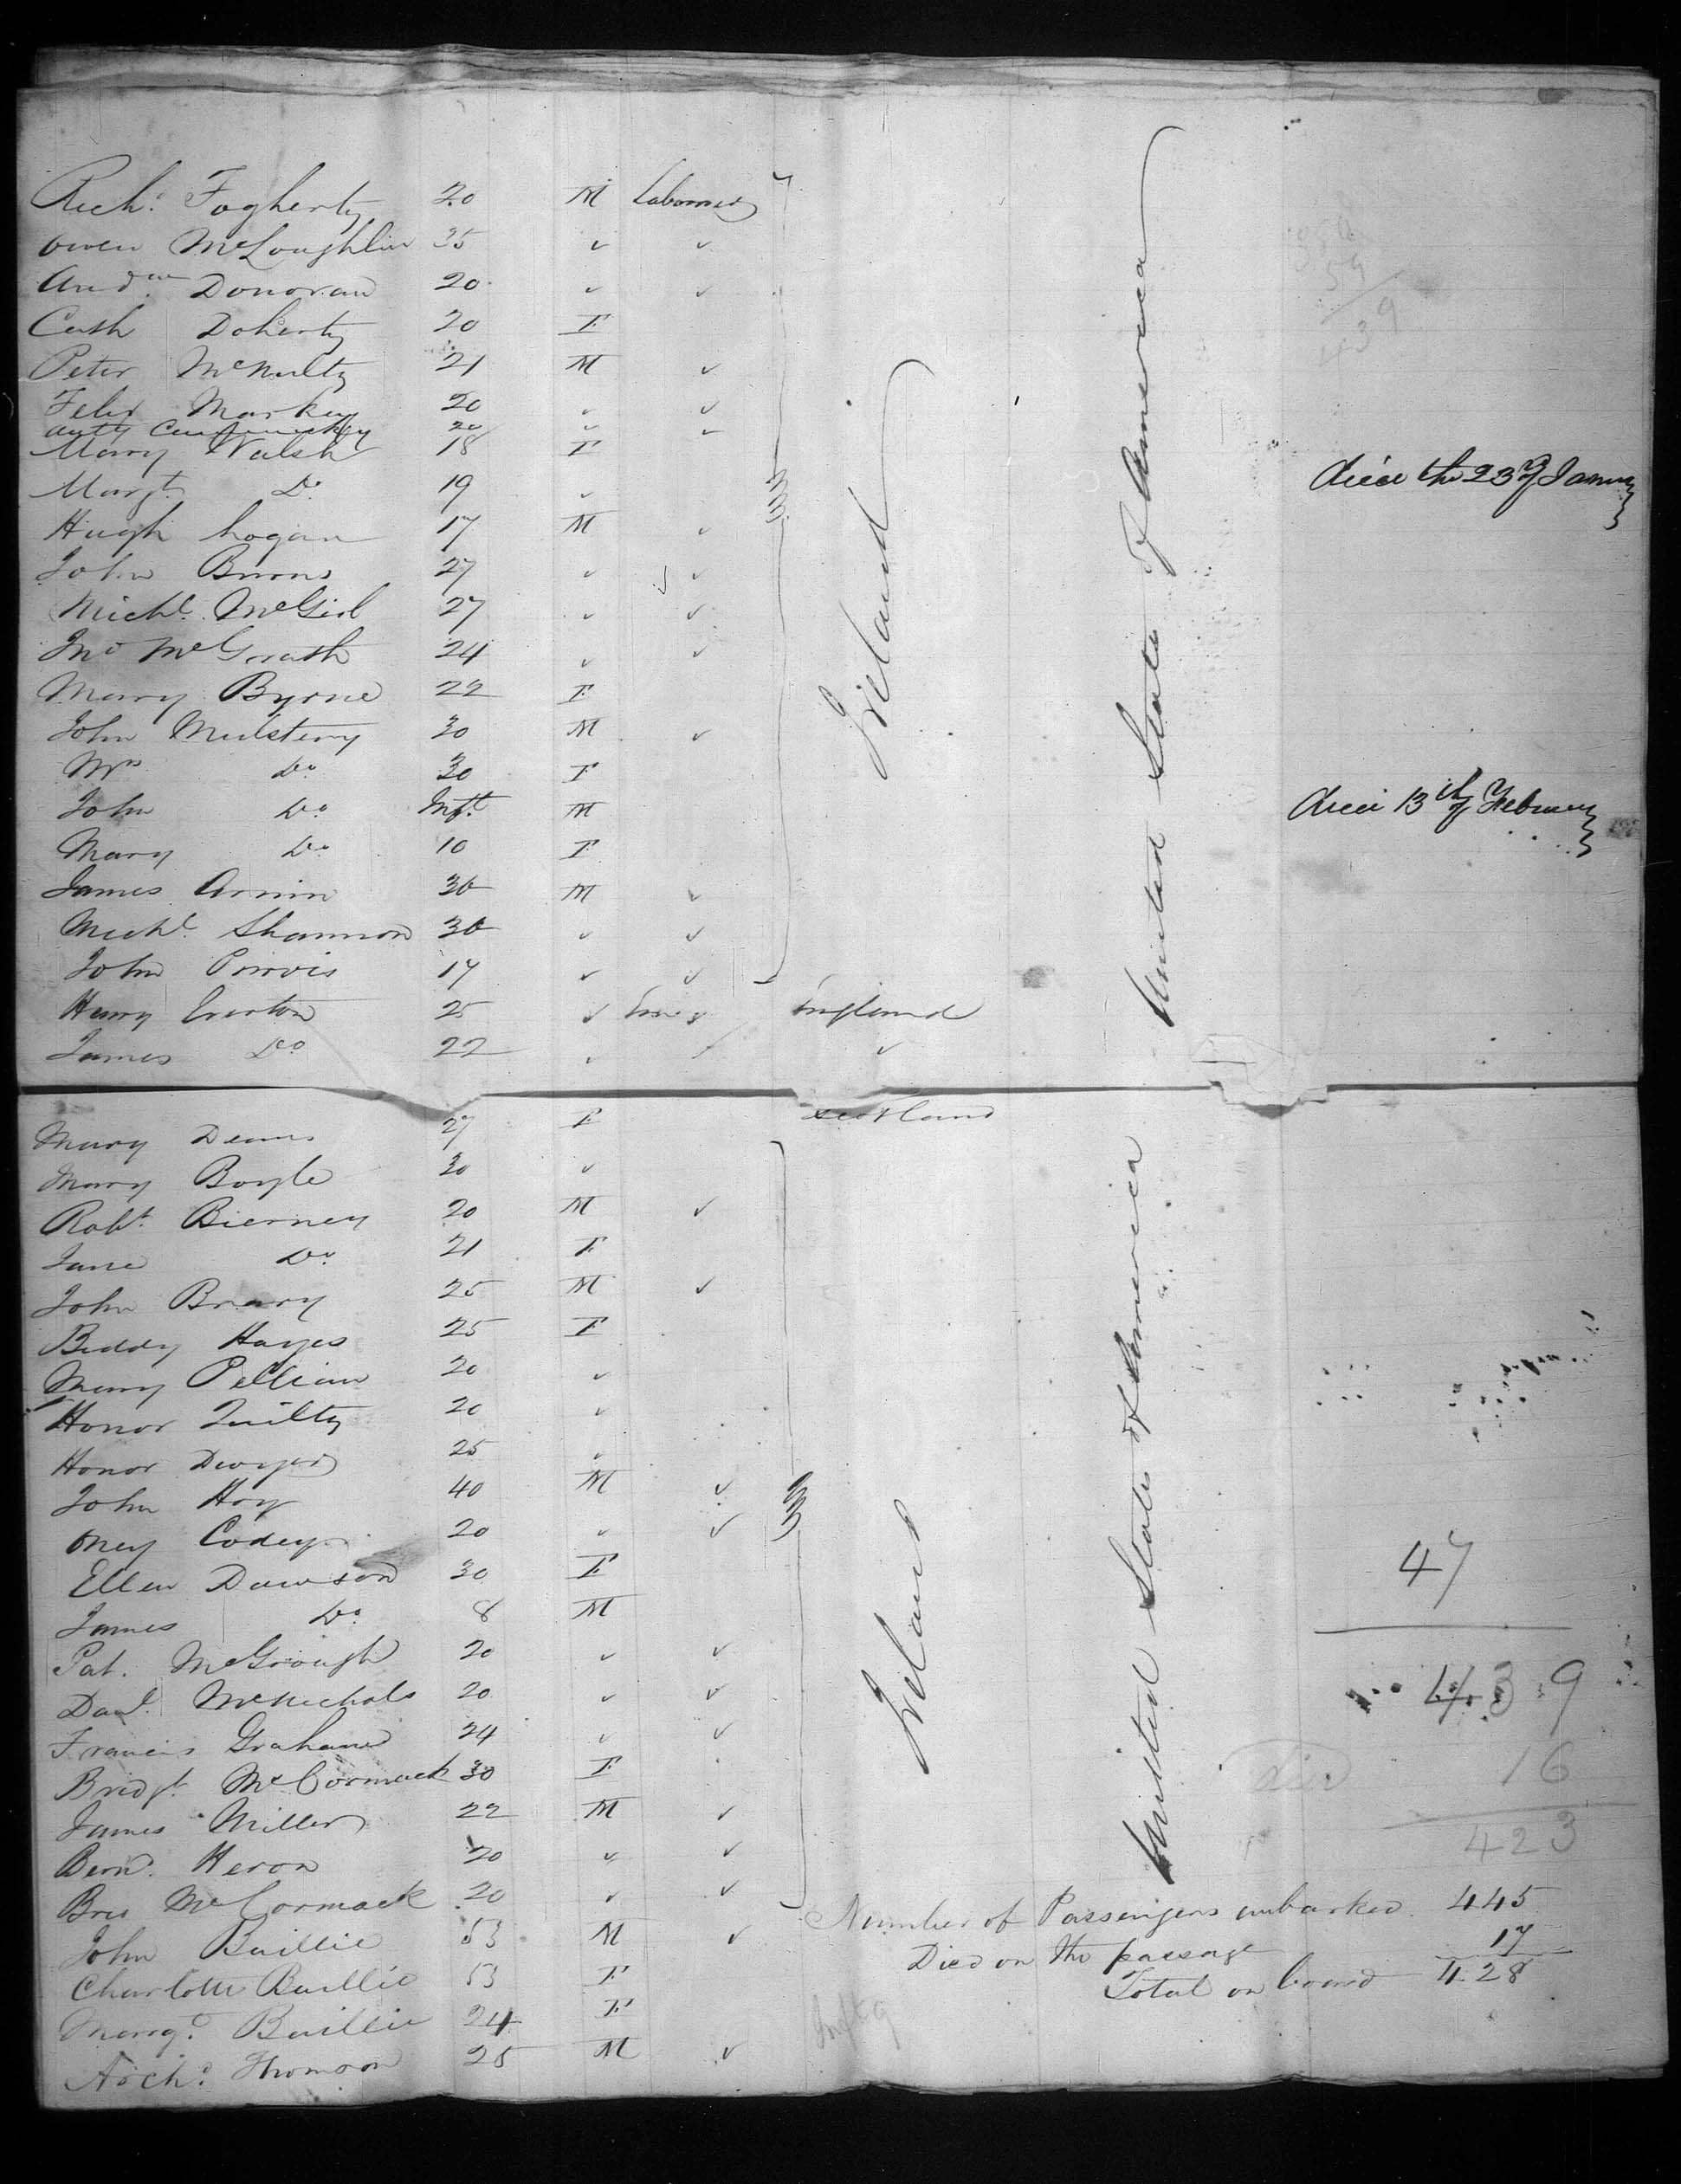 Richd. Fogherty 20 M Labourer
Owen McLoughlin 35 " "
Andw. Donovan 20 " "
Cath Doherty 20 F
Peter McNulty 21 M "
Felix Markey 20 " "
20 " "
Mary Walsh 18 F
Margt. Do. 19 " died the 23 of January
Hugh Logan 17 M "
John Burns 27 " "
Michl. McGirl 27 " "
Jno McGrath 24 " "
Mary Byrne 22 F
John 30 M "
Mrs Do. 30 F
John Do. Inft. M died 13th of February
Mary Do. 10 F
James 30 M "
Michl. Shannon 30 " "
John Purvis 17 " "
Ireland
United States of America
Henry Everton 25 " England
James Do 22 " " "
Mary Deans 27 F Scotland
Mary Boyle 30 "
Robt. Bierney 20 M "
Jane Do. 21 F
John Brary 25 M "
Biddy Hayes 25 F
Mary 20 "
Honor Quilty 20 "
Honor Dwyer 25 "
John Hoy 40 M "
Codey 20 " "
Ellen Dawson 30 F
James Do. 8 M
Pat. McGrough 20 " "
Danl. McNichols 20 " "
Francis Graham 24 " "
Bridgt. McCormack 30 F
James Miller 22 M "
Bernd. Heron 20 " "
McCormack 20 " "
Ireland
United States of America
John Baillie 53 M "
Charlotte Baillie 53 F
Margt. Baillie 24 F
Archd. Thomson 25 M "
47
439
16
423
Number of Passengers embarked 445
Died on the passage 17
Total on board 428